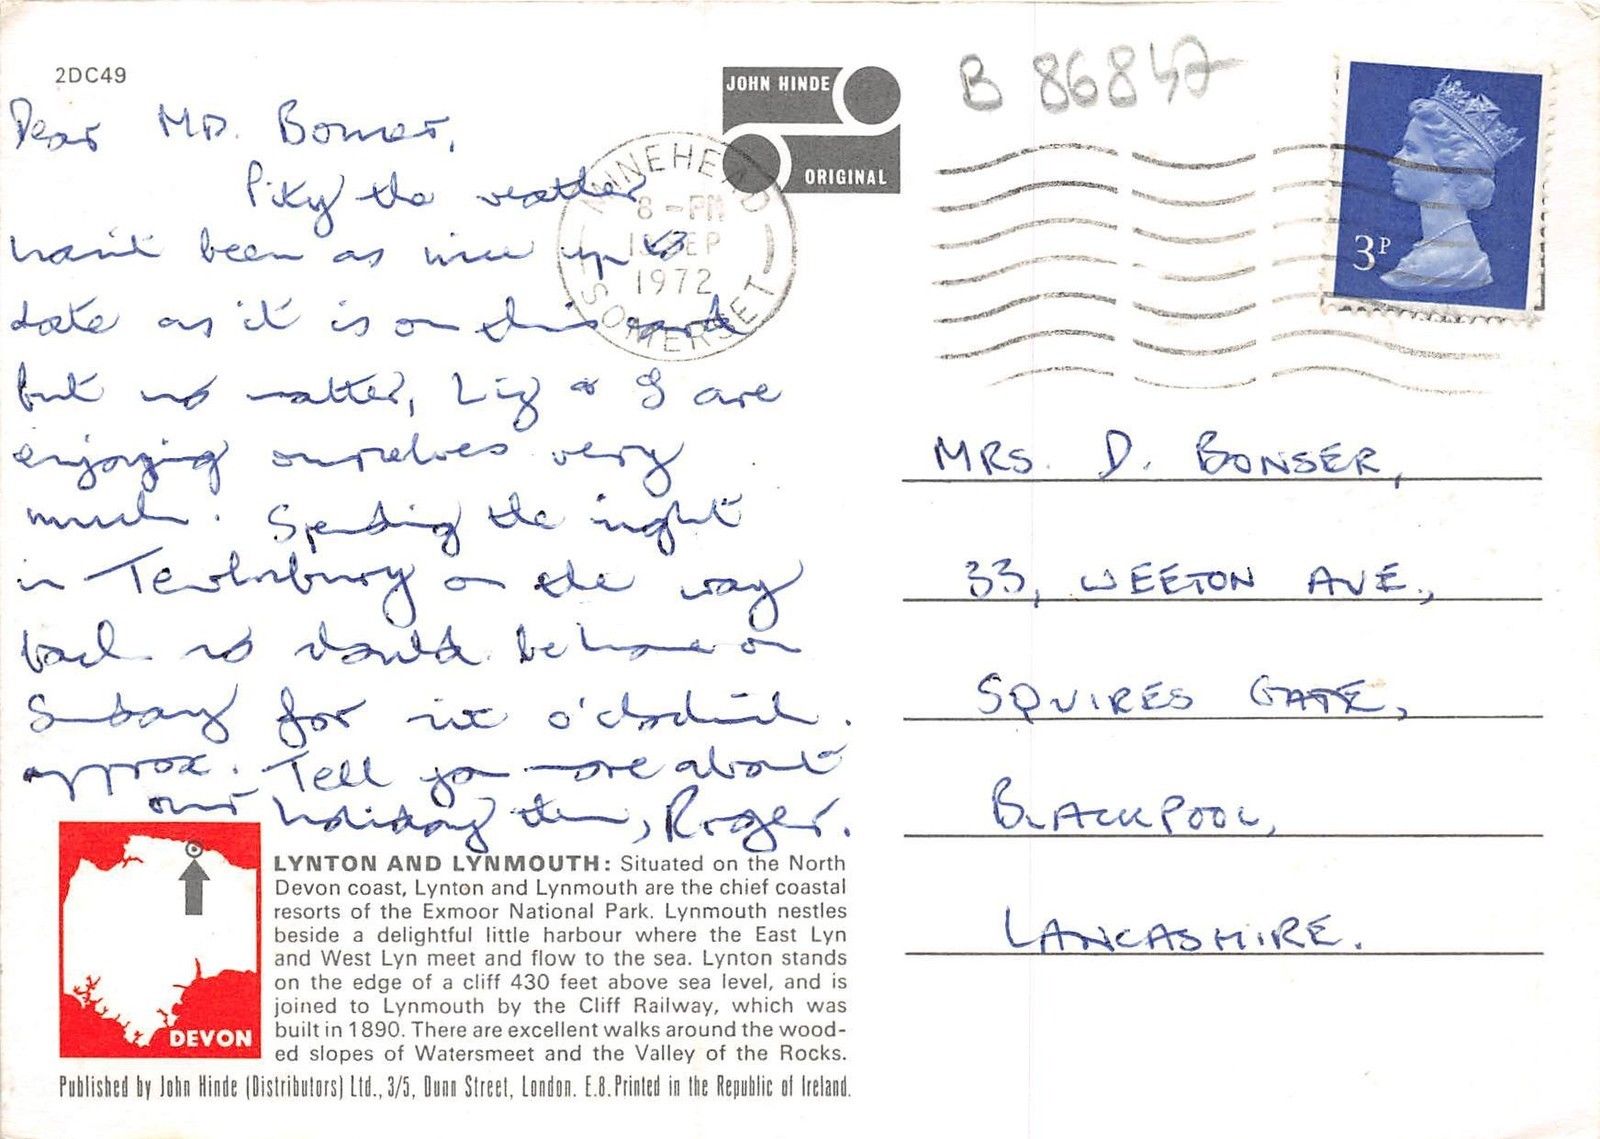 2DC49
JOHN HINDE
ORIGINAL
B 86847
MINEHEAD
8 - PM
SEP
1972
SOMERSET
3P
Dear Mrs. Bonser,
Pity the weather
hasn't been as nice up to
date as it is on this card
but no matter, Liz & I are
enjoying ourselves very
much. Spending the night
in Tewkesbury on the way
back so should be home on
Sunday for six o'clockish.
approx. Tell you more about
our holiday then, Roger.
MRS. D. BONSER,
33, WEETON AVE.,
SQUIRES GATE,
BLACKPOOL,
LANCASHIRE.
DEVON
LYNTON AND LYNMOUTH: Situated on the North
Devon coast, Lynton and Lynmouth are the chief coastal
resorts of the Exmoor National Park. Lynmouth nestles
beside a delightful little harbour where the East Lyn
and West Lyn meet and flow to the sea. Lynton stands
on the edge of a cliff 430 feet above sea level, and is
joined to Lynmouth by the Cliff Railway, which was
built in 1890. There are excellent walks around the wood-
ed slopes of Watersmeet and the Valley of the Rocks.
Published by John Hinde (Distributors) Ltd., 3/5, Dunn Street, London. E.8. Printed in the Republic of Ireland.